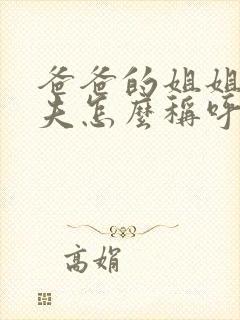 爸爸的姐姐
夫怎麼稱呼
高娟